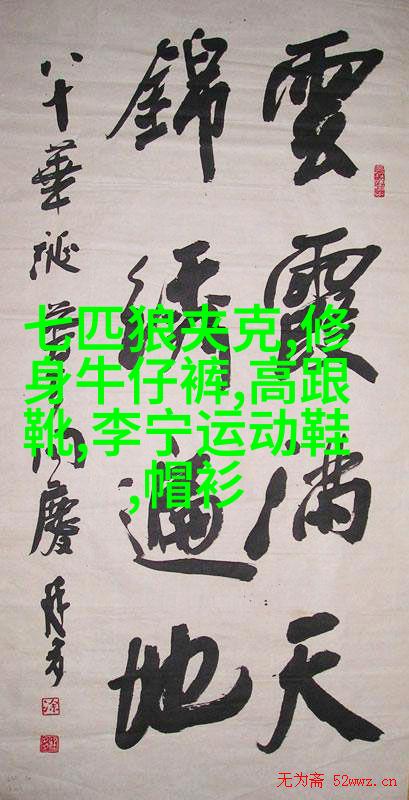 雲霞满天
錦绣遍地
八十華誕
慶
七匹狼夹克,修
身牛仔裤,高跟
靴,李宁运动鞋
,帽衫
无为斋 52wwz.cn